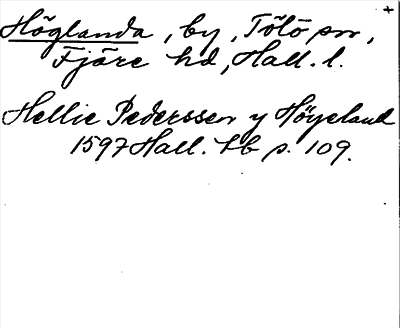 Höglanda, by, Tölö sn,
Fjäre hd, Hall. l.
Hellie Pederssen y Höyeland
1597 Hall. Lb p. 109.